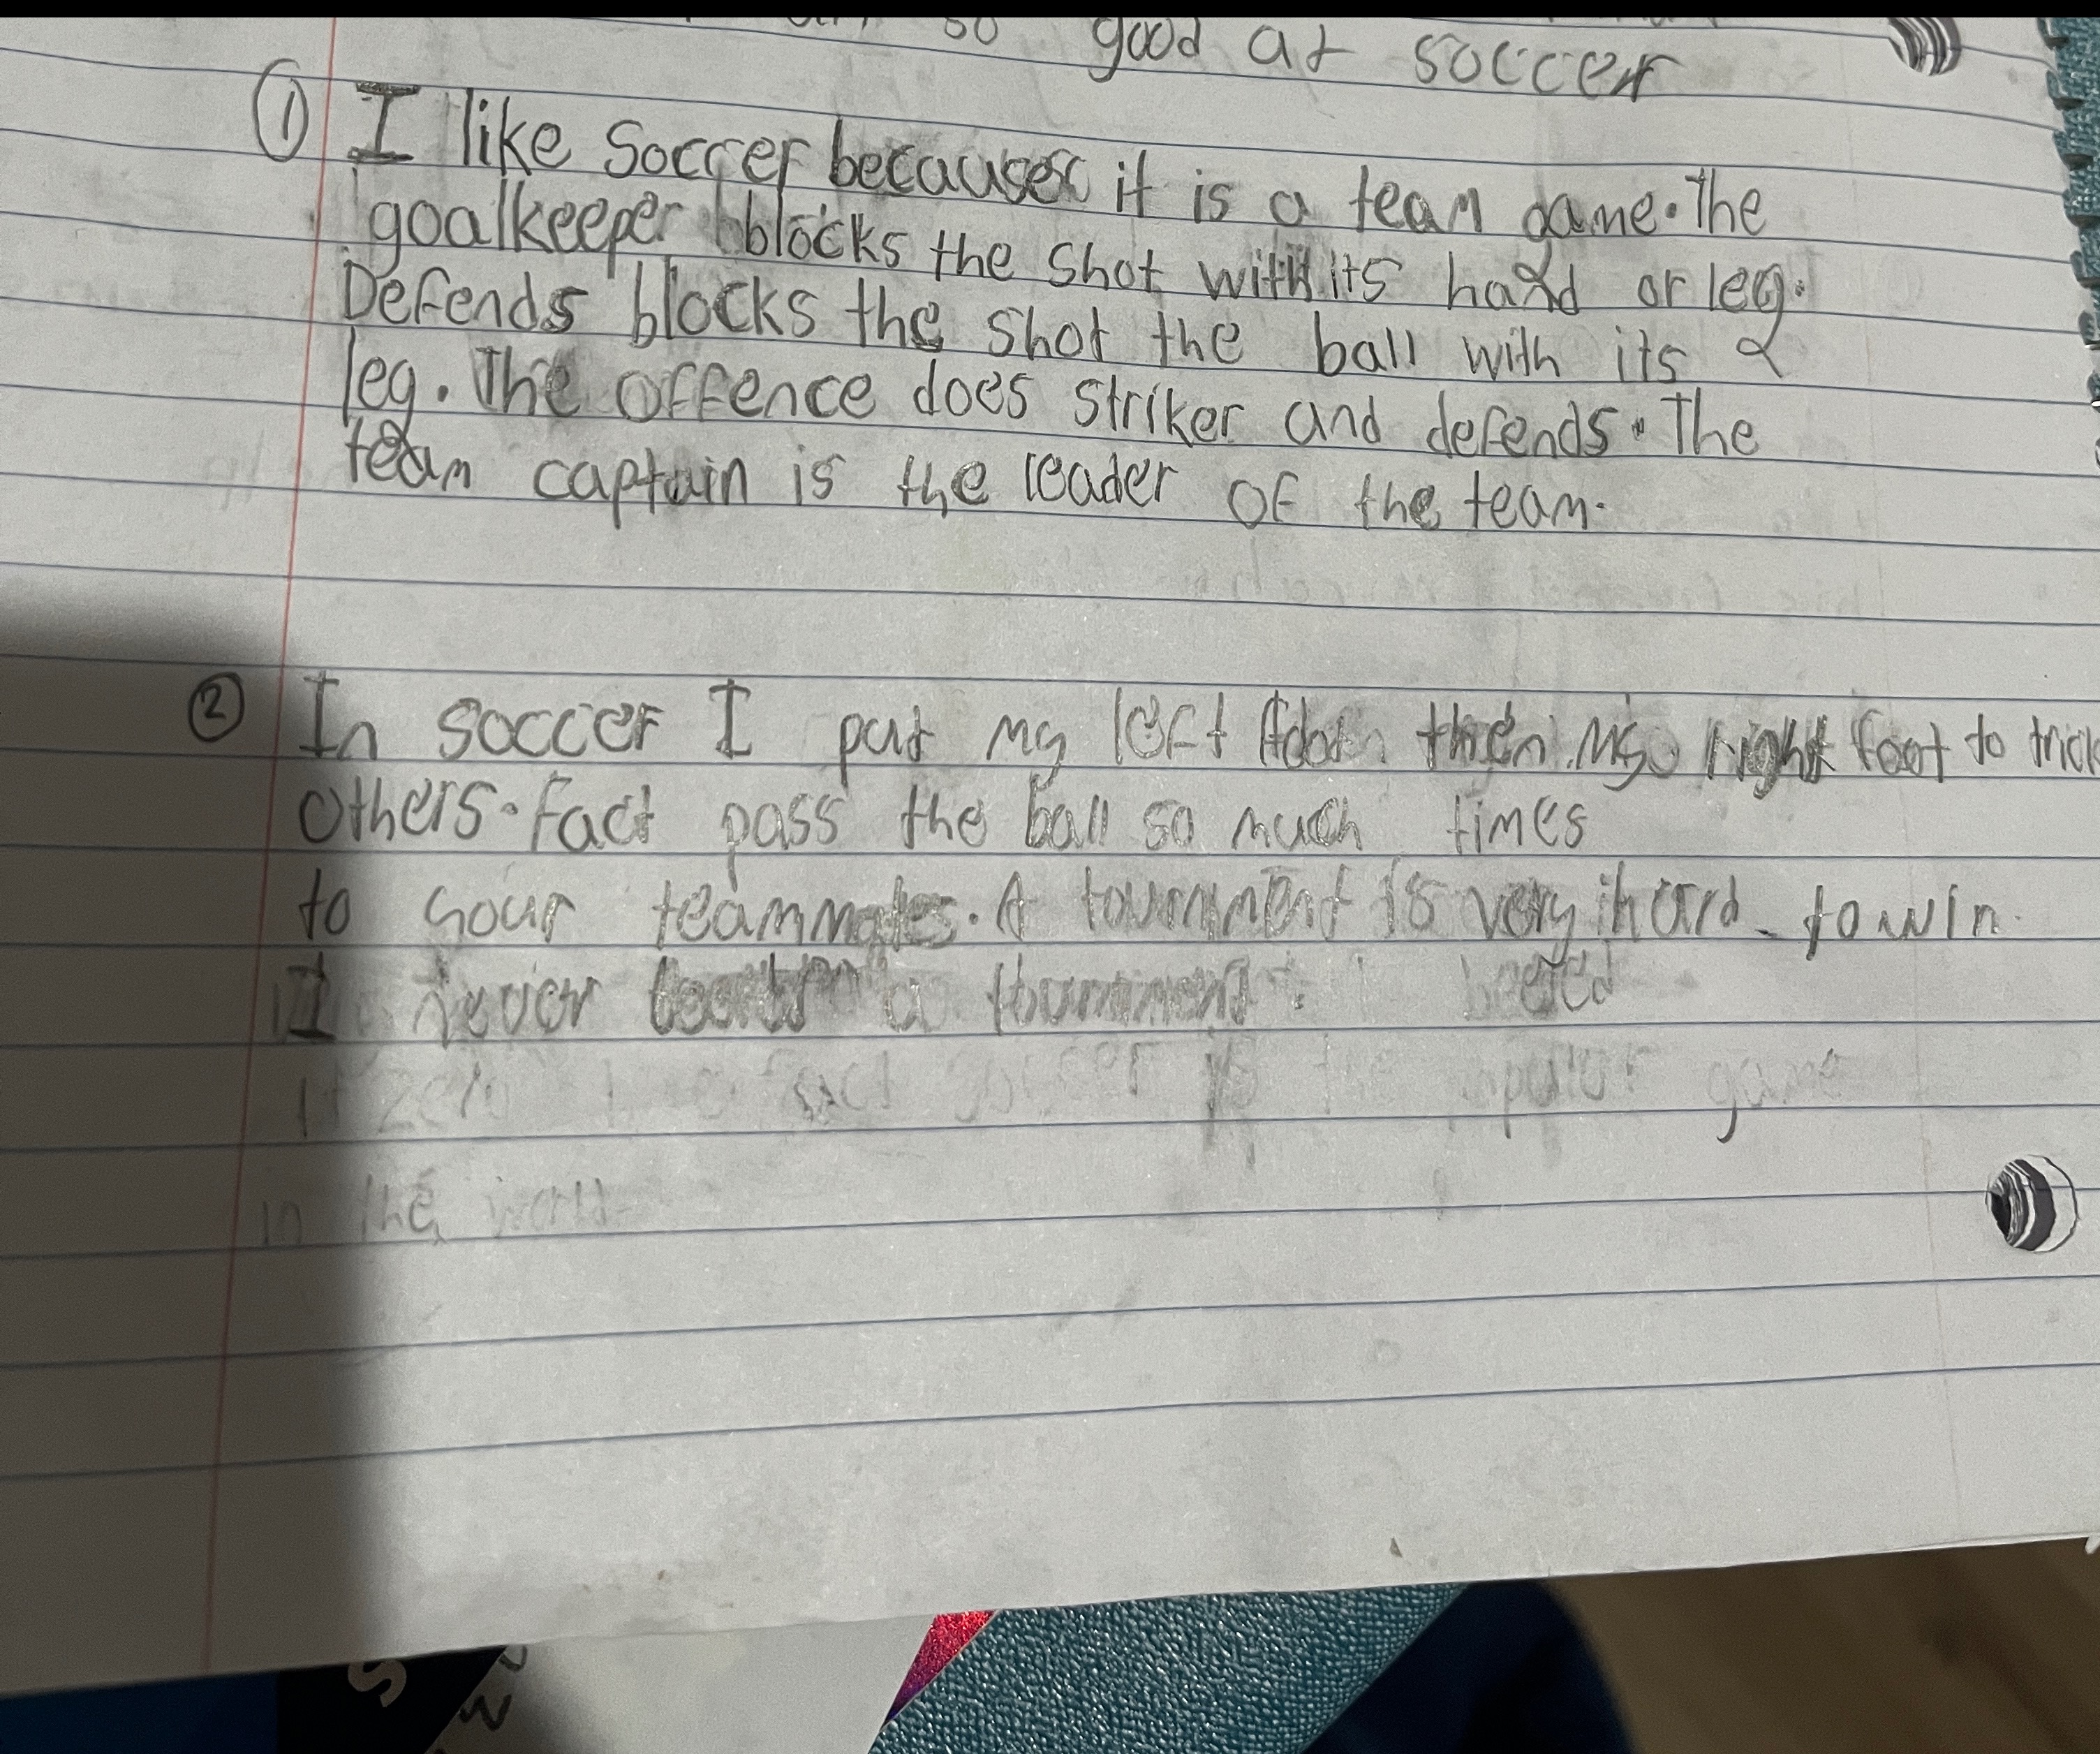 so good at soccer
① I like Soccer because it is a team game. The
goalkeeper blocks the shot with its hand or leg.
Defends blocks the shot the ball with its 2
leg. The offence does striker and defends. The
team captain is the leader of the team.
② In soccer I put my left then my right foot to trick
others. Fact pass the ball so much times
to your teammates. A tournment is very hard to win.
I never a
in the